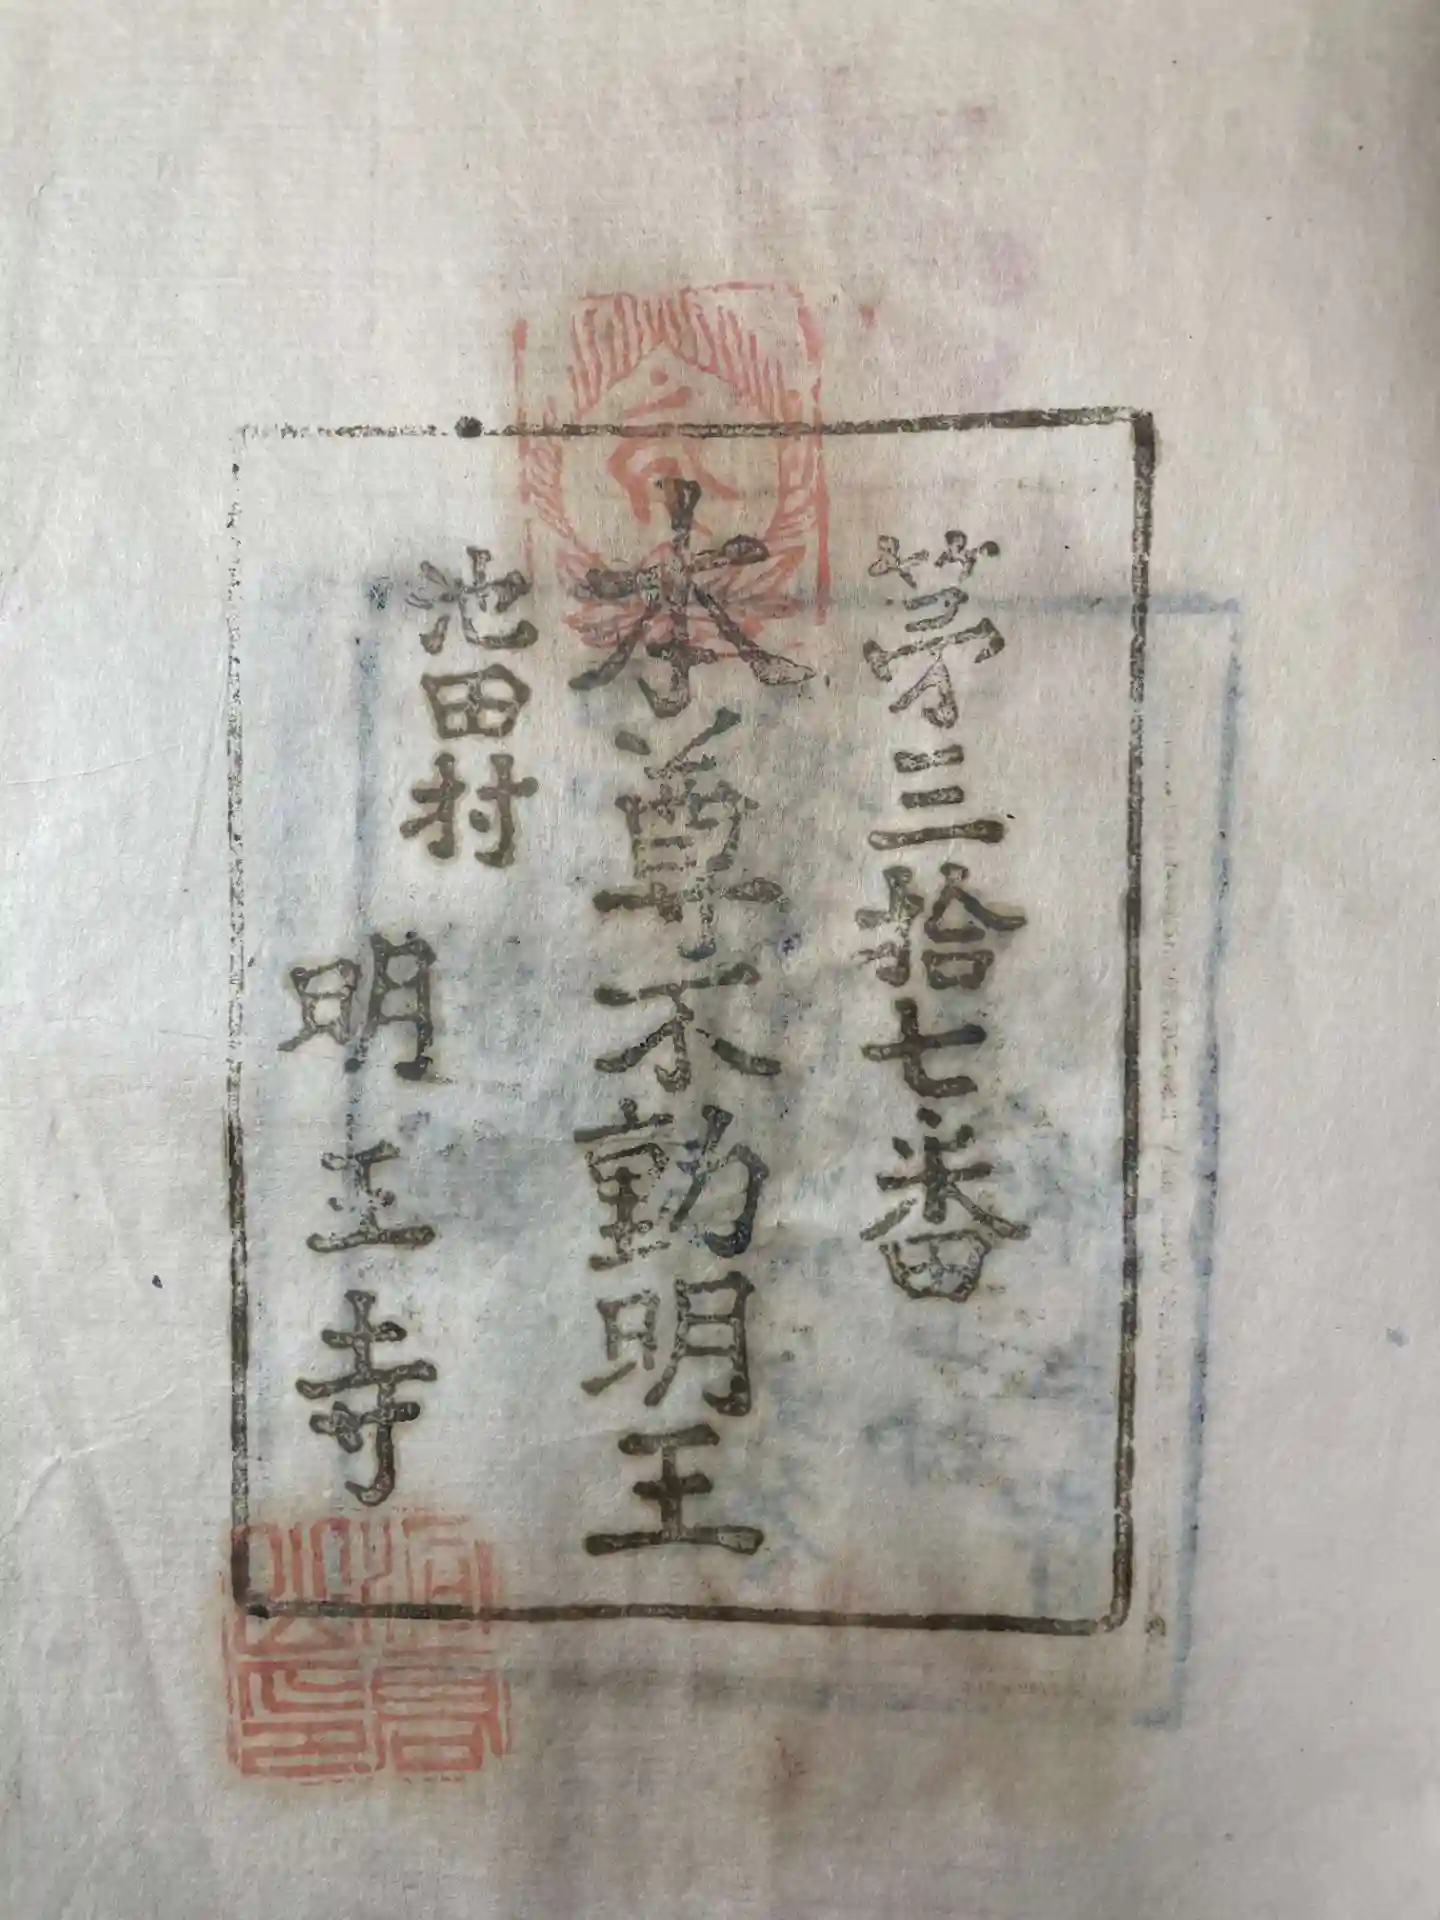 茅三拾七番
本尊不動明王
池田村
明王寺